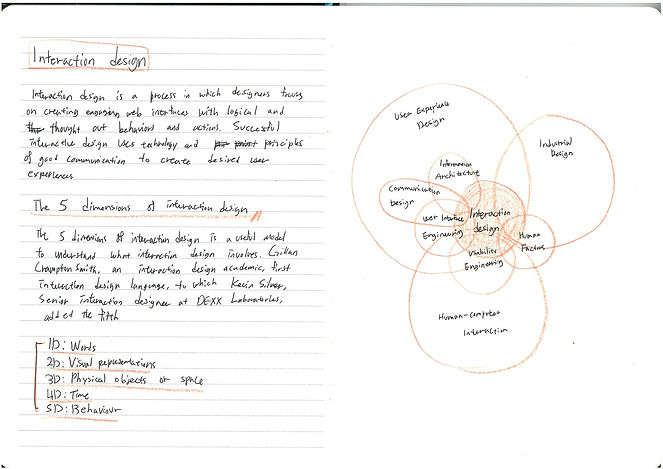 Interaction design
Interaction design is a process in which designers focus
on creating engaging web interfaces with logical and
thought out behaviors and actions. Successful
interactive design uses technology and principles
of good communication to create desired user
experiences
The 5 dimensions of interaction design
The 5 dimensions of interaction design is a useful model
to understand what interaction design involves. Gillian
Crampton Smith, an interaction design academic, first
interaction design language, to which Kevin Silver,
Senior interaction designer at IDEXX Laboratories,
added the fifth
1D: Words
2D: Visual representations
3D: Physical objects or space
4D: Time
5D: Behaviour
User Experience
Design
Industrial
Design
Information
Architecture
Communication
Design
User Interface
Engineering
Interaction
design
Human
Factors
Usability
Engineering
Human-computer
Interaction